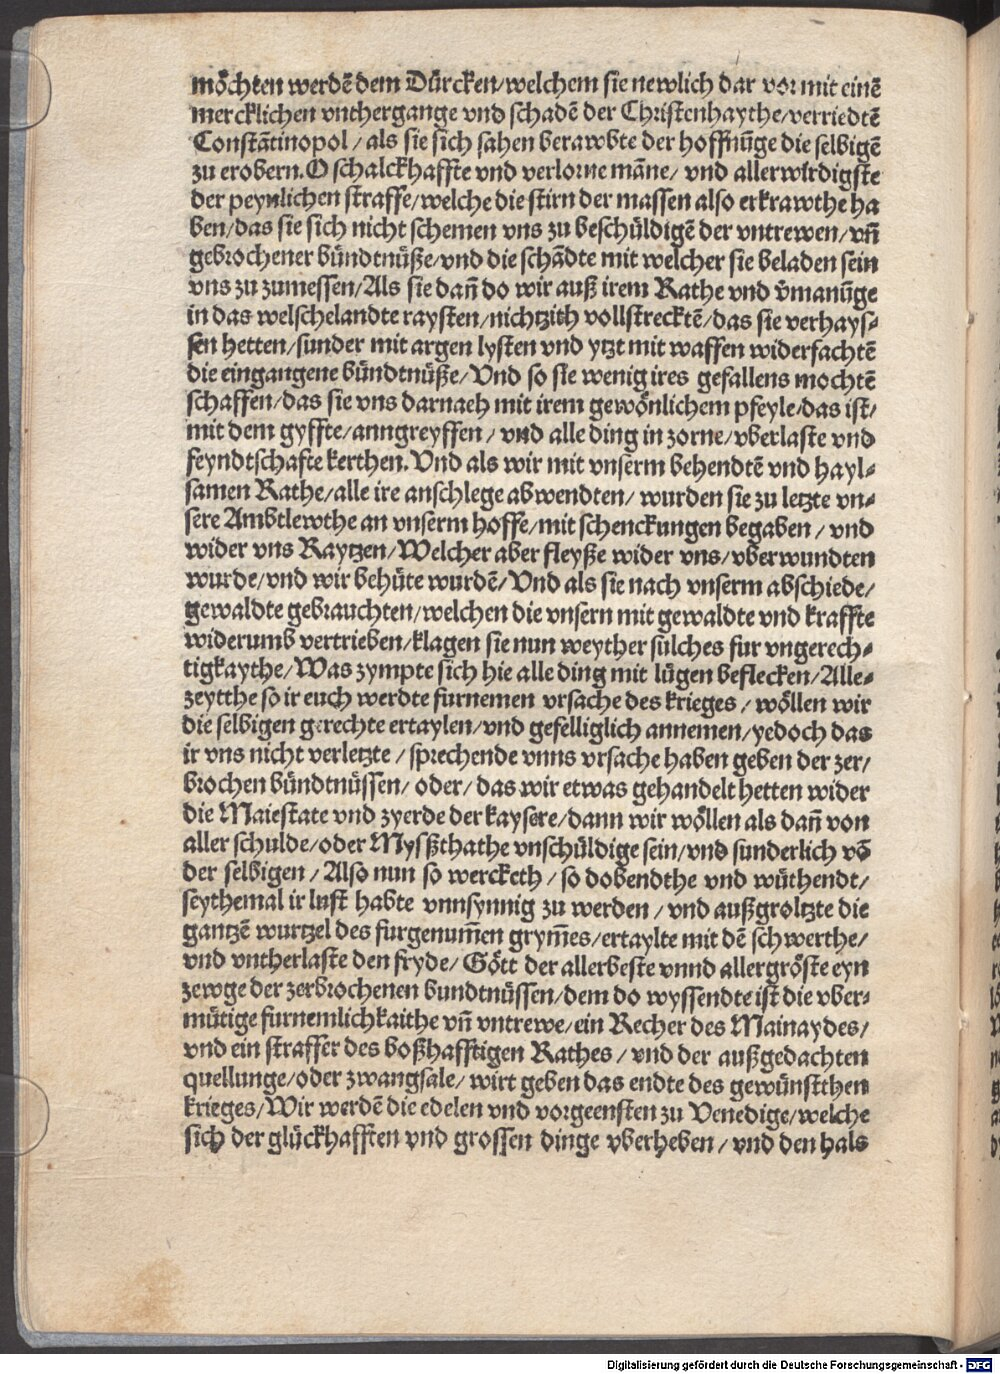 möchten werdē dem Dürcken/welchem sie newlich dar vor mit einē
mercklichen vnthergange vnd schadē der Christenhaythe/verriedtē
Constātinopol/als sie sich sahen berawbte der hoffnūge die selbigē
zu erobern.O schalckhaffte vnd verlorne māne/ vnd allerwirdigste
der peynlichen straffe/welche die stirn der massen also erkrawthe ha
ben/das sie sich nicht schemen vns zu beschüldigē der vntrewen/vn̄
gebrochener bündtnüße/vnd die schādte mit welcher sie beladen sein
vns zu zumessen/Als sie dan̄ do wir auß irem Rathe vnd v̄manūge
in das welschelandte raysten/nichtzith vollstrecktē/das sie verhays⸗
sen hetten/sunder mit argen lysten vnd ytzt mit waffen widerfachtē
die eingangene bündtnüße/Vnd so sie wenig ires gefallens mochtē
schaffen/das sie vns darnach mit irem gewönlichem pfeyle/das ist/
mit dem gyffte/anngreyffen/ vnd alle ding in zorne/vberlaste vnd
feyndtschafte kerthen.Vnd als wir mit vnserm behendtē vnd hayl⸗
samen Rathe/alle ire anschlege abwendten/ wurden sie zu letzte vn⸗
sere Ambtlewthe an vnserm hoffe/mit schenckungen begaben/ vnd
wider vns Raytzen/Welcher aber fleyße wider vns/vberwundten
wurde/vnd wir behüte wurdē/Vnd als sie nach vnserm abschiede/
gewaldte gebrauchten/welchen die vnsern mit gewaldte vnd kraffte
widerumb vertrieben/klagen sie nun weyther sülches fur vngerech⸗
tigkaythe/Was zympte sich hie alle ding mit lügen beflecken/Alle⸗
zeytthe so ir euch werdte furnemen vrsache des krieges/ wöllen wir
die selbigen gerechte ertaylen/vnd gefelliglich annemen/yedoch das
ir vns nicht verletzte/sprechende vnns vrsache haben geben der zer/
brochen bündtnüssen/ oder/ das wir etwas gehandelt hetten wider
die Maiestate vnd zyerde der kaysere/dann wir wöllen als dan̄ von
aller schulde/oder Mysßthathe vnschüldige sein/vnd sunderlich vō
der selbigen/ Also nun so wercketh/ so dobendthe vnd wüthendt/
seythemal ir lust habte vnnsynnig zu werden/ vnd außgroltzte die
gantzē wurtzel des furgenum̄en grym̄es/ertaylte mit dē schwerthe/
vnd vntherlaste den fryde/ Gött der allerbeste vnnd allergröste eyn
zewge der zerbrochenen bundtnüssen/dem do wyssendte ist die vber⸗
mütige furnemlichkaithe vn̄ vntrewe/ein Recher des Mainaydes/
vnd ein straffer des boßhafftigen Rathes/ vnd der außgedachten
quellunge/oder zwangsale/ wirt geben das endte des gewünstthen
krieges/Wir werdē die edelen vnd vorgeensten zu Venedige/welche
sich der glückhafften vnd grossen dinge vberheben/ vnd den hals
Digitalisierung gefördert durch die Deutsche Forschungsgemeinschaft - DFG